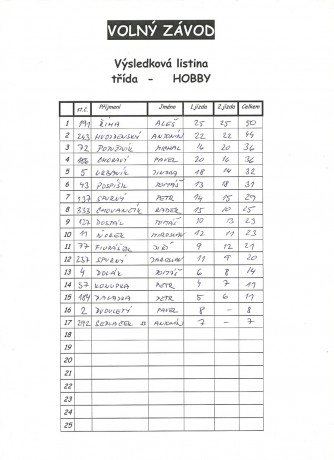 VOLNÝ ZÁVOD
Výsledková listina
třída - HOBBY
st.č. Příjmení Jméno 1.jízda 2.jízda Celkem
1 ŘÍHA ALEŠ 25 25 50
2 243 ANTONÍN 22 22 44
3 72 MICHAL 16 20 36
4 PAVEL 20 16 36
5 5 URBANÍK 18 14 32
6 43 POSPÍŠIL TOMÁŠ 13 18 31
7 137 SPURNÝ PETR 14 15 29
8 333 CHOVANČÍK RADEK 15 10 25
9 127 DOLEŽAL TOMÁŠ 10 13 23
10 11 MIROSLAV 12 11 23
11 77 JIŘÍ 9 12 21
12 237 SPURNÝ JAROSLAV 11 9 20
13 4 TOMÁŠ 6 8 14
14 57 KOLUPKA PETR 4 7 11
15 184 PETR 5 6 11
16 2 PAVEL 8 - 8
17 292 SEDLÁČEK ANTONÍN 7 - 7
18
19
20
21
22
23
24
25